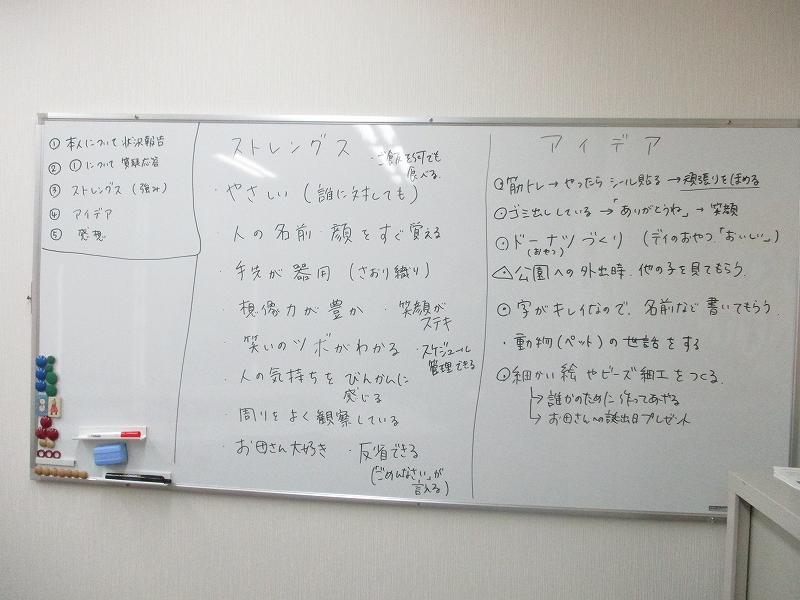 ① 本人について 状況報告
② ①について 質疑応答
③ ストレングス (強み)
④ アイデア
⑤ 発想
ストレングス
・ご飯を何でも
食べる
・やさしい (誰に対しても)
・人の名前・顔をすぐ覚える
・手先が器用 (さおり織り)
・想像力が豊か ・笑顔が
ステキ
・笑いのツボがわかる ・スケジュール
管理できる
・人の気持ちをびんかんに
感じる
・周りをよく観察している
・お母さん大好き ・反省できる
(「ごめんなさい」が
言える)
アイデア
筋トレ→やったら シール貼る →頑張りをほめる
ゴミ出ししている →「ありがとうね」→ 笑顔
ドーナツづくり (デイのおやつ「おいしい」)
(おやつ)
公園への外出時、他の子を見てもらう。
字がキレイなので、名前など書いてもらう。
・動物(ペット)の世話をする
細かい絵やビーズ細工をつくる。
→ 誰かのために作ってあげる
→ お母さんへの誕生日プレゼント